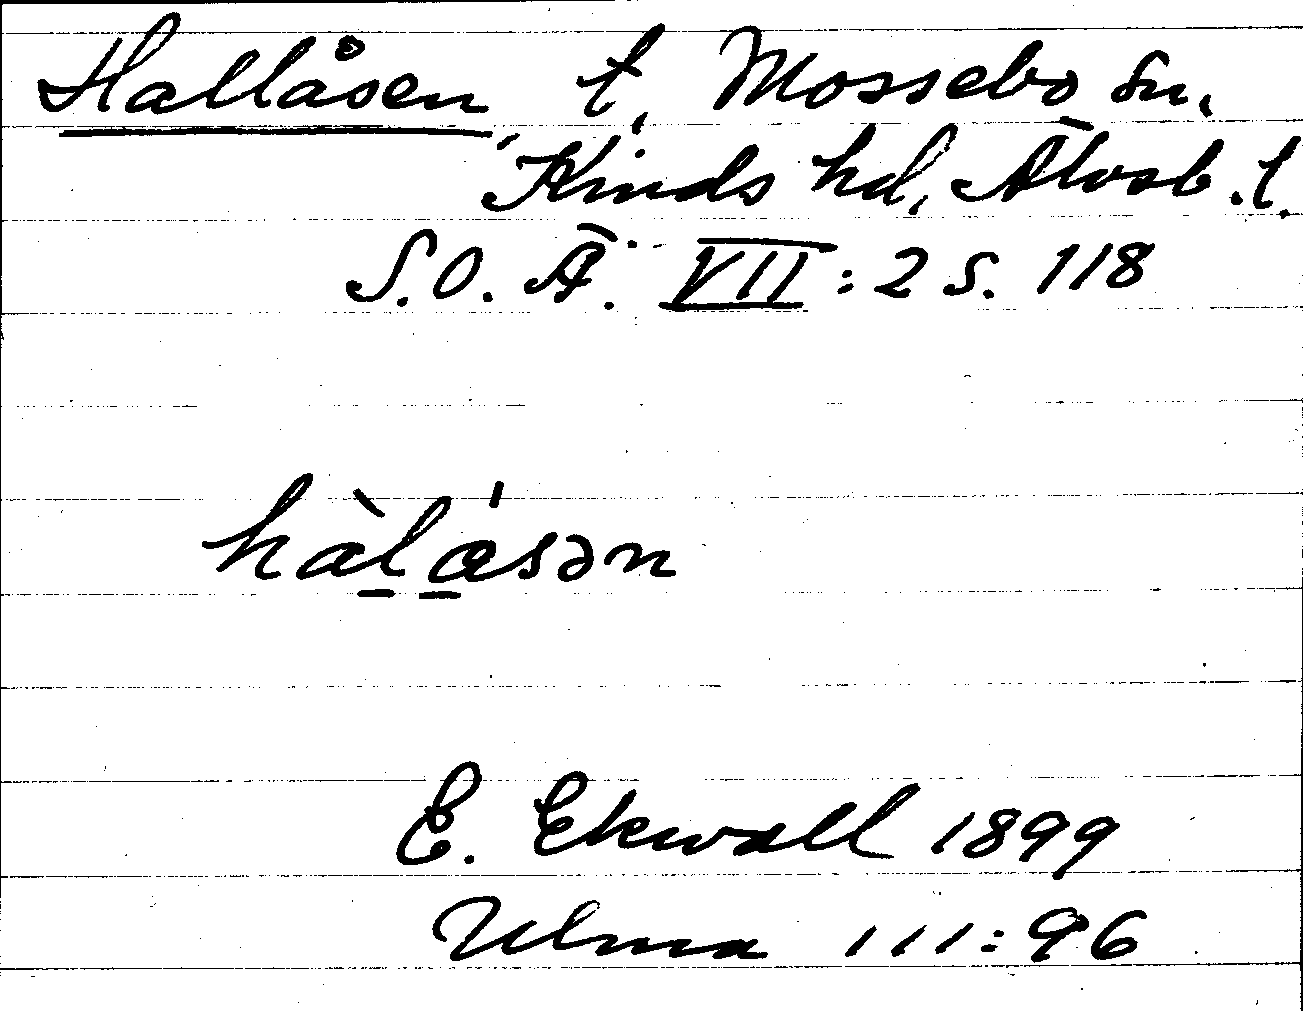 Hallåsen, t, Mossebo sn.
Kinds hd, Älvsb. l.
S.O. Ä. VII: 2 s. 118
hàlåsən
E. Ekwall 1899
Ulma 111:96